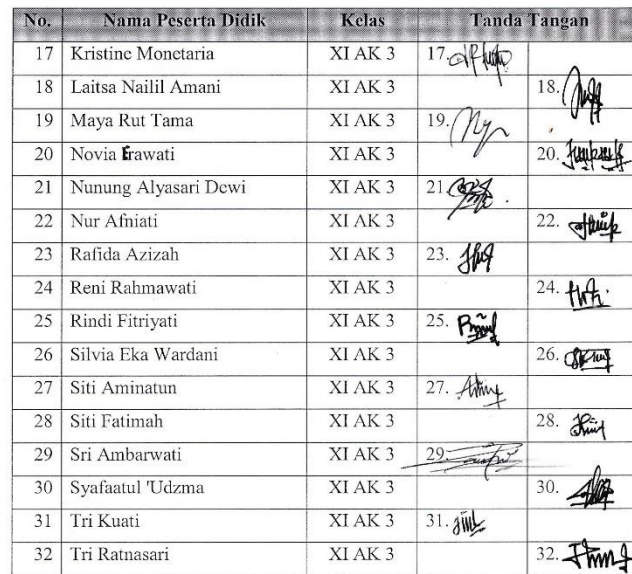 No. Nama Peserta Didik Kelas Tanda Tangan
17 Kristine Monetaria XI AK 3 17.
18 Laitsa Nailil Amani XI AK 3 18.
19 Maya Rut Tama XI AK 3 19.
20 Novia Erawati XI AK 3 20.
21 Nunung Alyasari Dewi XI AK 3 21
22 Nur Afniati XI AK 3 22.
23 Rafida Azizah XI AK 3 23.
24 Reni Rahmawati XI AK 3 24.
25 Rindi Fitriyati XI AK 3 25.
26 Silvia Eka Wardani XI AK 3 26.
27 Siti Aminatun XI AK 3 27.
28 Siti Fatimah XI AK 3 28.
29 Sri Ambarwati XI AK 3 29.
30 Syafaatul 'Udzma XI AK 3 30.
31 Tri Kuati XI AK 3 31.
32 Tri Ratnasari XI AK 3 32.